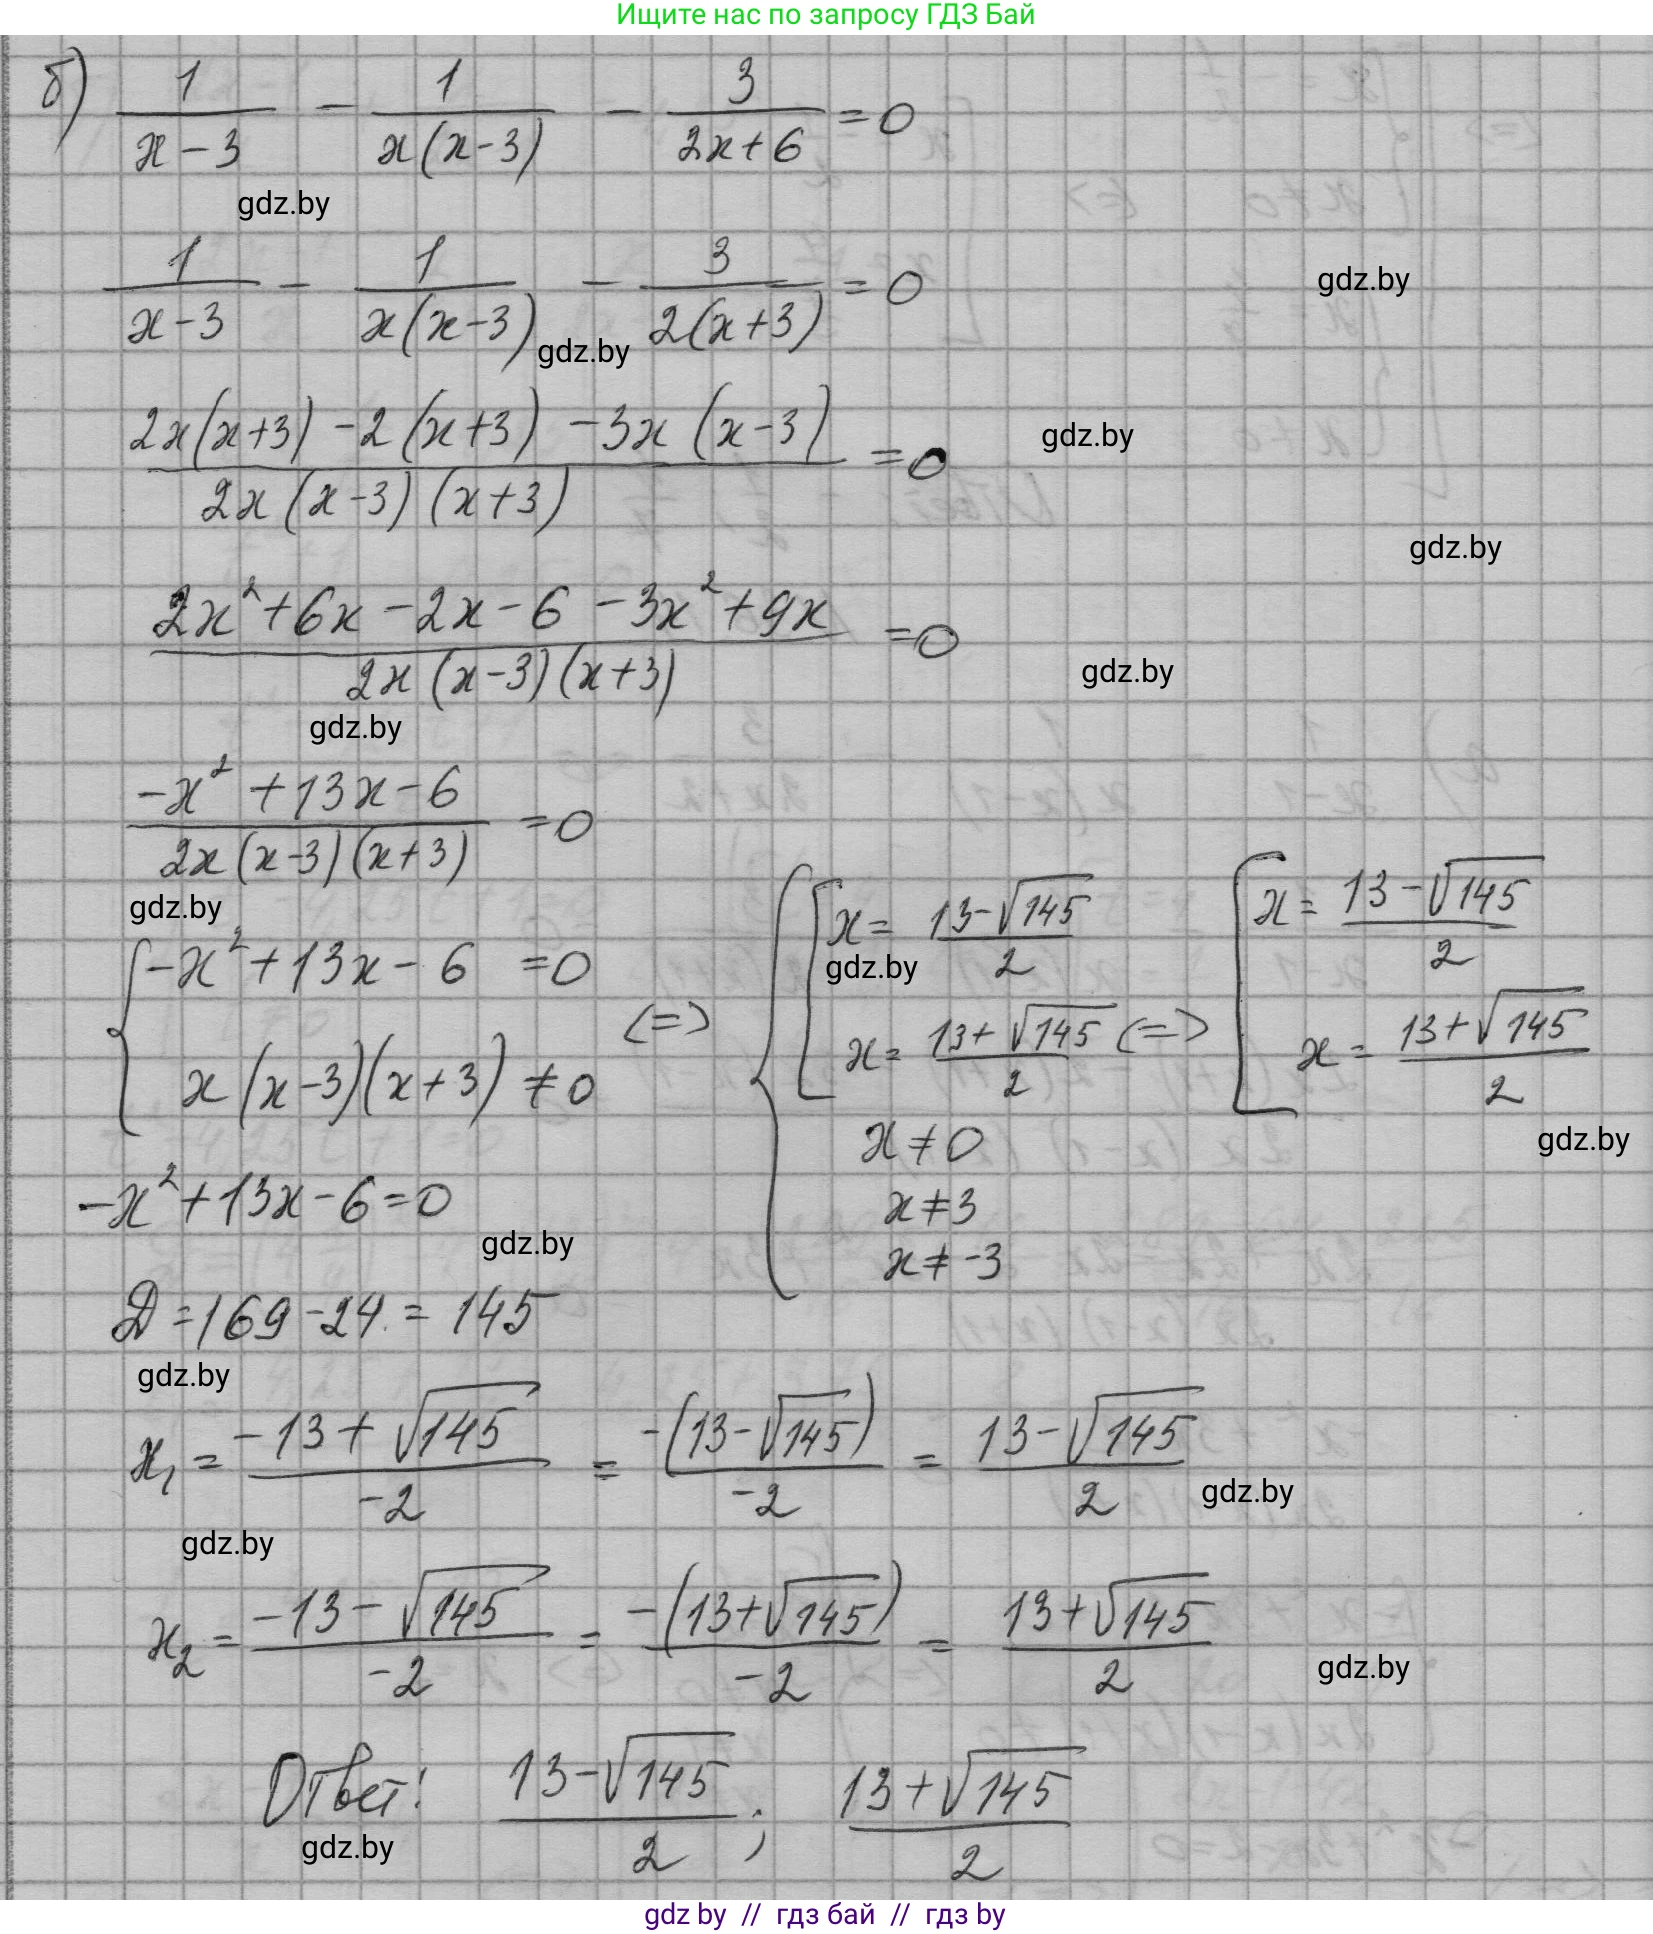 Ищите нас по запросу ГДЗ Бай
б) 1/(x-3) - 1/(x(x-3)) - 3/(2x+6) = 0
gdz.by
1/(x-3) - 1/(x(x-3)) - 3/(2(x+3)) = 0
gdz.by
gdz.by
(2x(x+3) - 2(x+3) - 3x(x-3))/(2x(x-3)(x+3)) = 0
gdz.by
gdz.by
(2x²+6x-2x-6-3x²+9x)/(2x(x-3)(x+3)) = 0
gdz.by
gdz.by
(-x²+13x-6)/(2x(x-3)(x+3)) = 0
gdz.by
{ -x²+13x-6 = 0
x(x-3)(x+3) ≠ 0
<=>
{ [ x = (13-√145)/2
gdz.by
x = (13+√145)/2
x ≠ 0
x ≠ 3
x ≠ -3
<=>
[ x = (13-√145)/2
x = (13+√145)/2
gdz.by
-x²+13x-6=0
gdz.by
D = 169-24 = 145
gdz.by
x₁ = (-13+√145)/(-2) = (-(13-√145))/(-2) = (13-√145)/2
gdz.by
gdz.by
x₂ = (-13-√145)/(-2) = (-(13+√145))/(-2) = (13+√145)/2
gdz.by
Ответ: (13-√145)/2 ; (13+√145)/2
gdz.by
gdz by // гдз бай // гдз by